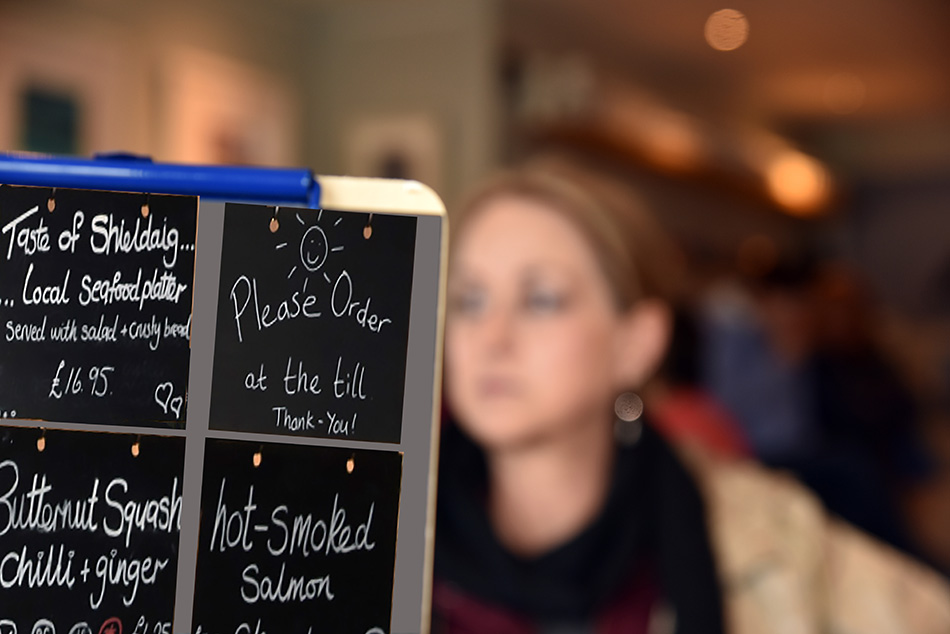 Taste of Shieldaig...
... Local Seafood platter
Served with salad + crusty bread
£16.95
...
Please Order
at the till
Thank-You!
Butternut Squash
chilli + ginger
hot-smoked
Salmon